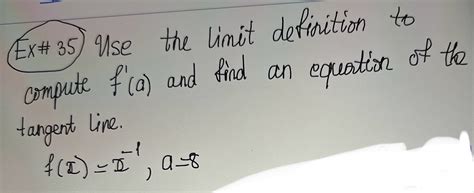 Ex# 35 Use the limit definition to
compute f'(a) and find an equation of the
tangent line.
f(x) = x⁻¹, a=8